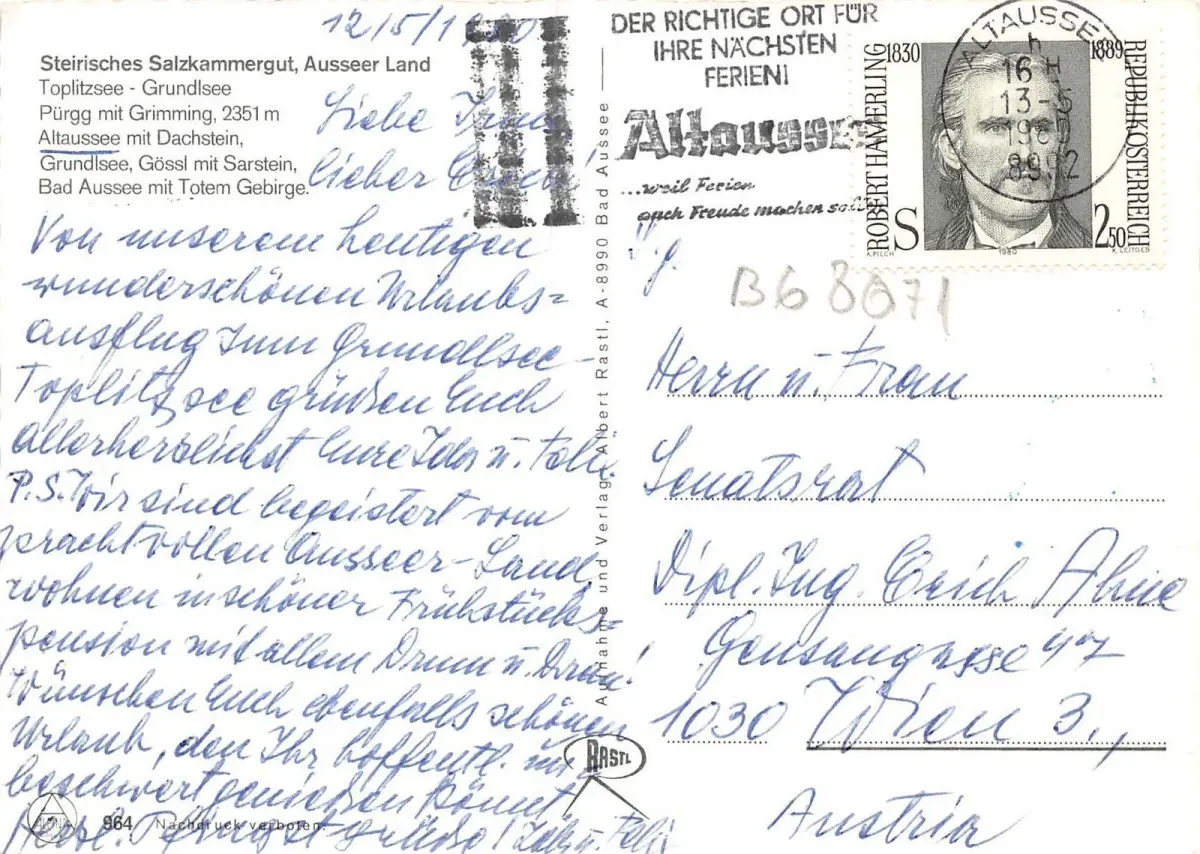 12/5/1980
Steirisches Salzkammergut, Ausseer Land
Toplitzsee - Grundlsee
Pürgg mit Grimming, 2351 m
Altaussee mit Dachstein,
Grundlsee, Gössl mit Sarstein,
Bad Aussee mit Totem Gebirge.
Liebe
lieber Erich!
Von unserem heutigen
wunderschönen Urlaubs=
ausflug zum Grundlsee-
Toplitzsee grüßen Euch
allerherzlichst Eure Ida u. Felix
P.S. Wir sind begeistert vom
prachtvollen Ausseer-Land,
wohnen in schöner Frühstücks=
pension mit allem Drum u. Dran!
Wünschen Euch ebenfalls schönen
Urlaub, den Ihr hoffentl. un=
beschwert genießen könnt!
Herzl. Pfingstgrüße! Ida u. Felix
964 Nachdruck verboten.
Aufnahme und Verlag Albert Rastl, A-8990 Bad Aussee
RASTL
DER RICHTIGE ORT FÜR
IHRE NÄCHSTEN
FERIEN!
Altaussee
...weil Ferien
auch Freude machen soll
ALTAUSSEE
16 H
13-5
1980
8992
ROBERT HAMERLING
1830
1889
REPUBLIK ÖSTERREICH
S 2.50
A. PILCH 1980 K. LEITGEB
B68071
Herrn u. Frau
Senatsrat
Dipl. Ing. Erich Ahne
Gensaugasse 47
1030 Wien 3.,
Austria